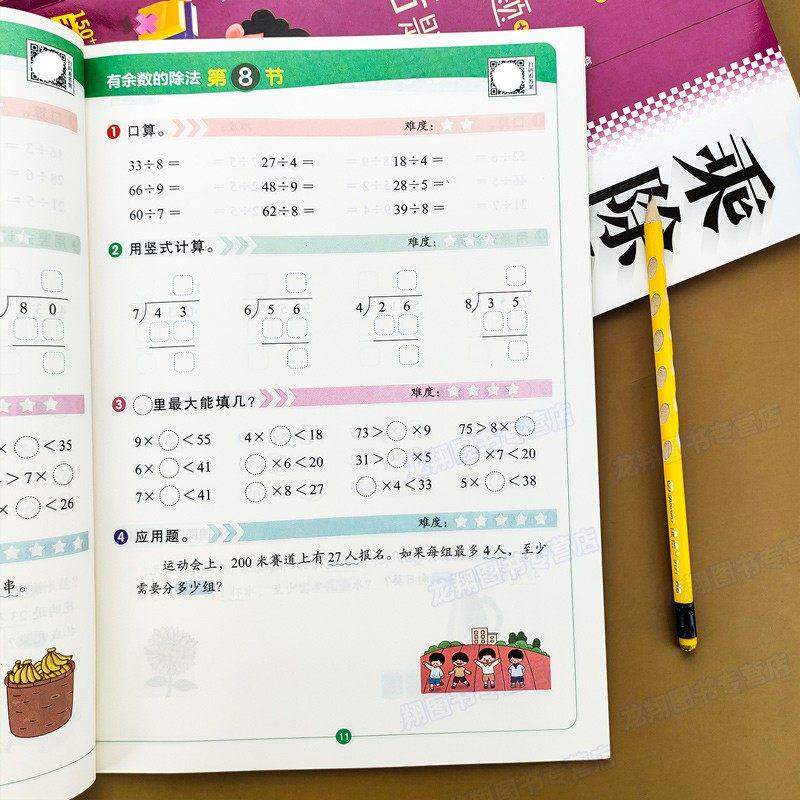 150+
乘除
<35
>7×
<26
串。
8 0
有余数的除法 第 8 节
扫码看答案
1 口算。 难度：
33÷8＝ 27÷4＝ 18÷4＝
66÷9＝ 48÷9＝ 28÷5＝
60÷7＝ 62÷8＝ 39÷8＝
2 用竖式计算。 难度：
7 4 3 6 5 6 4 2 6 8 3 5
3 里最大能填几？ 难度：
9× <55 4× <18 73> ×9 75>8×
6× <41 ×6<20 31> ×5 ×7<20
7× <41 ×8<27 ×4<33 5× <38
4 应用题。 难度：
运动会上，200 米赛道上有27人报名。如果每组最多4人，至少
需要分多少组？
11
龙翔图书专营店